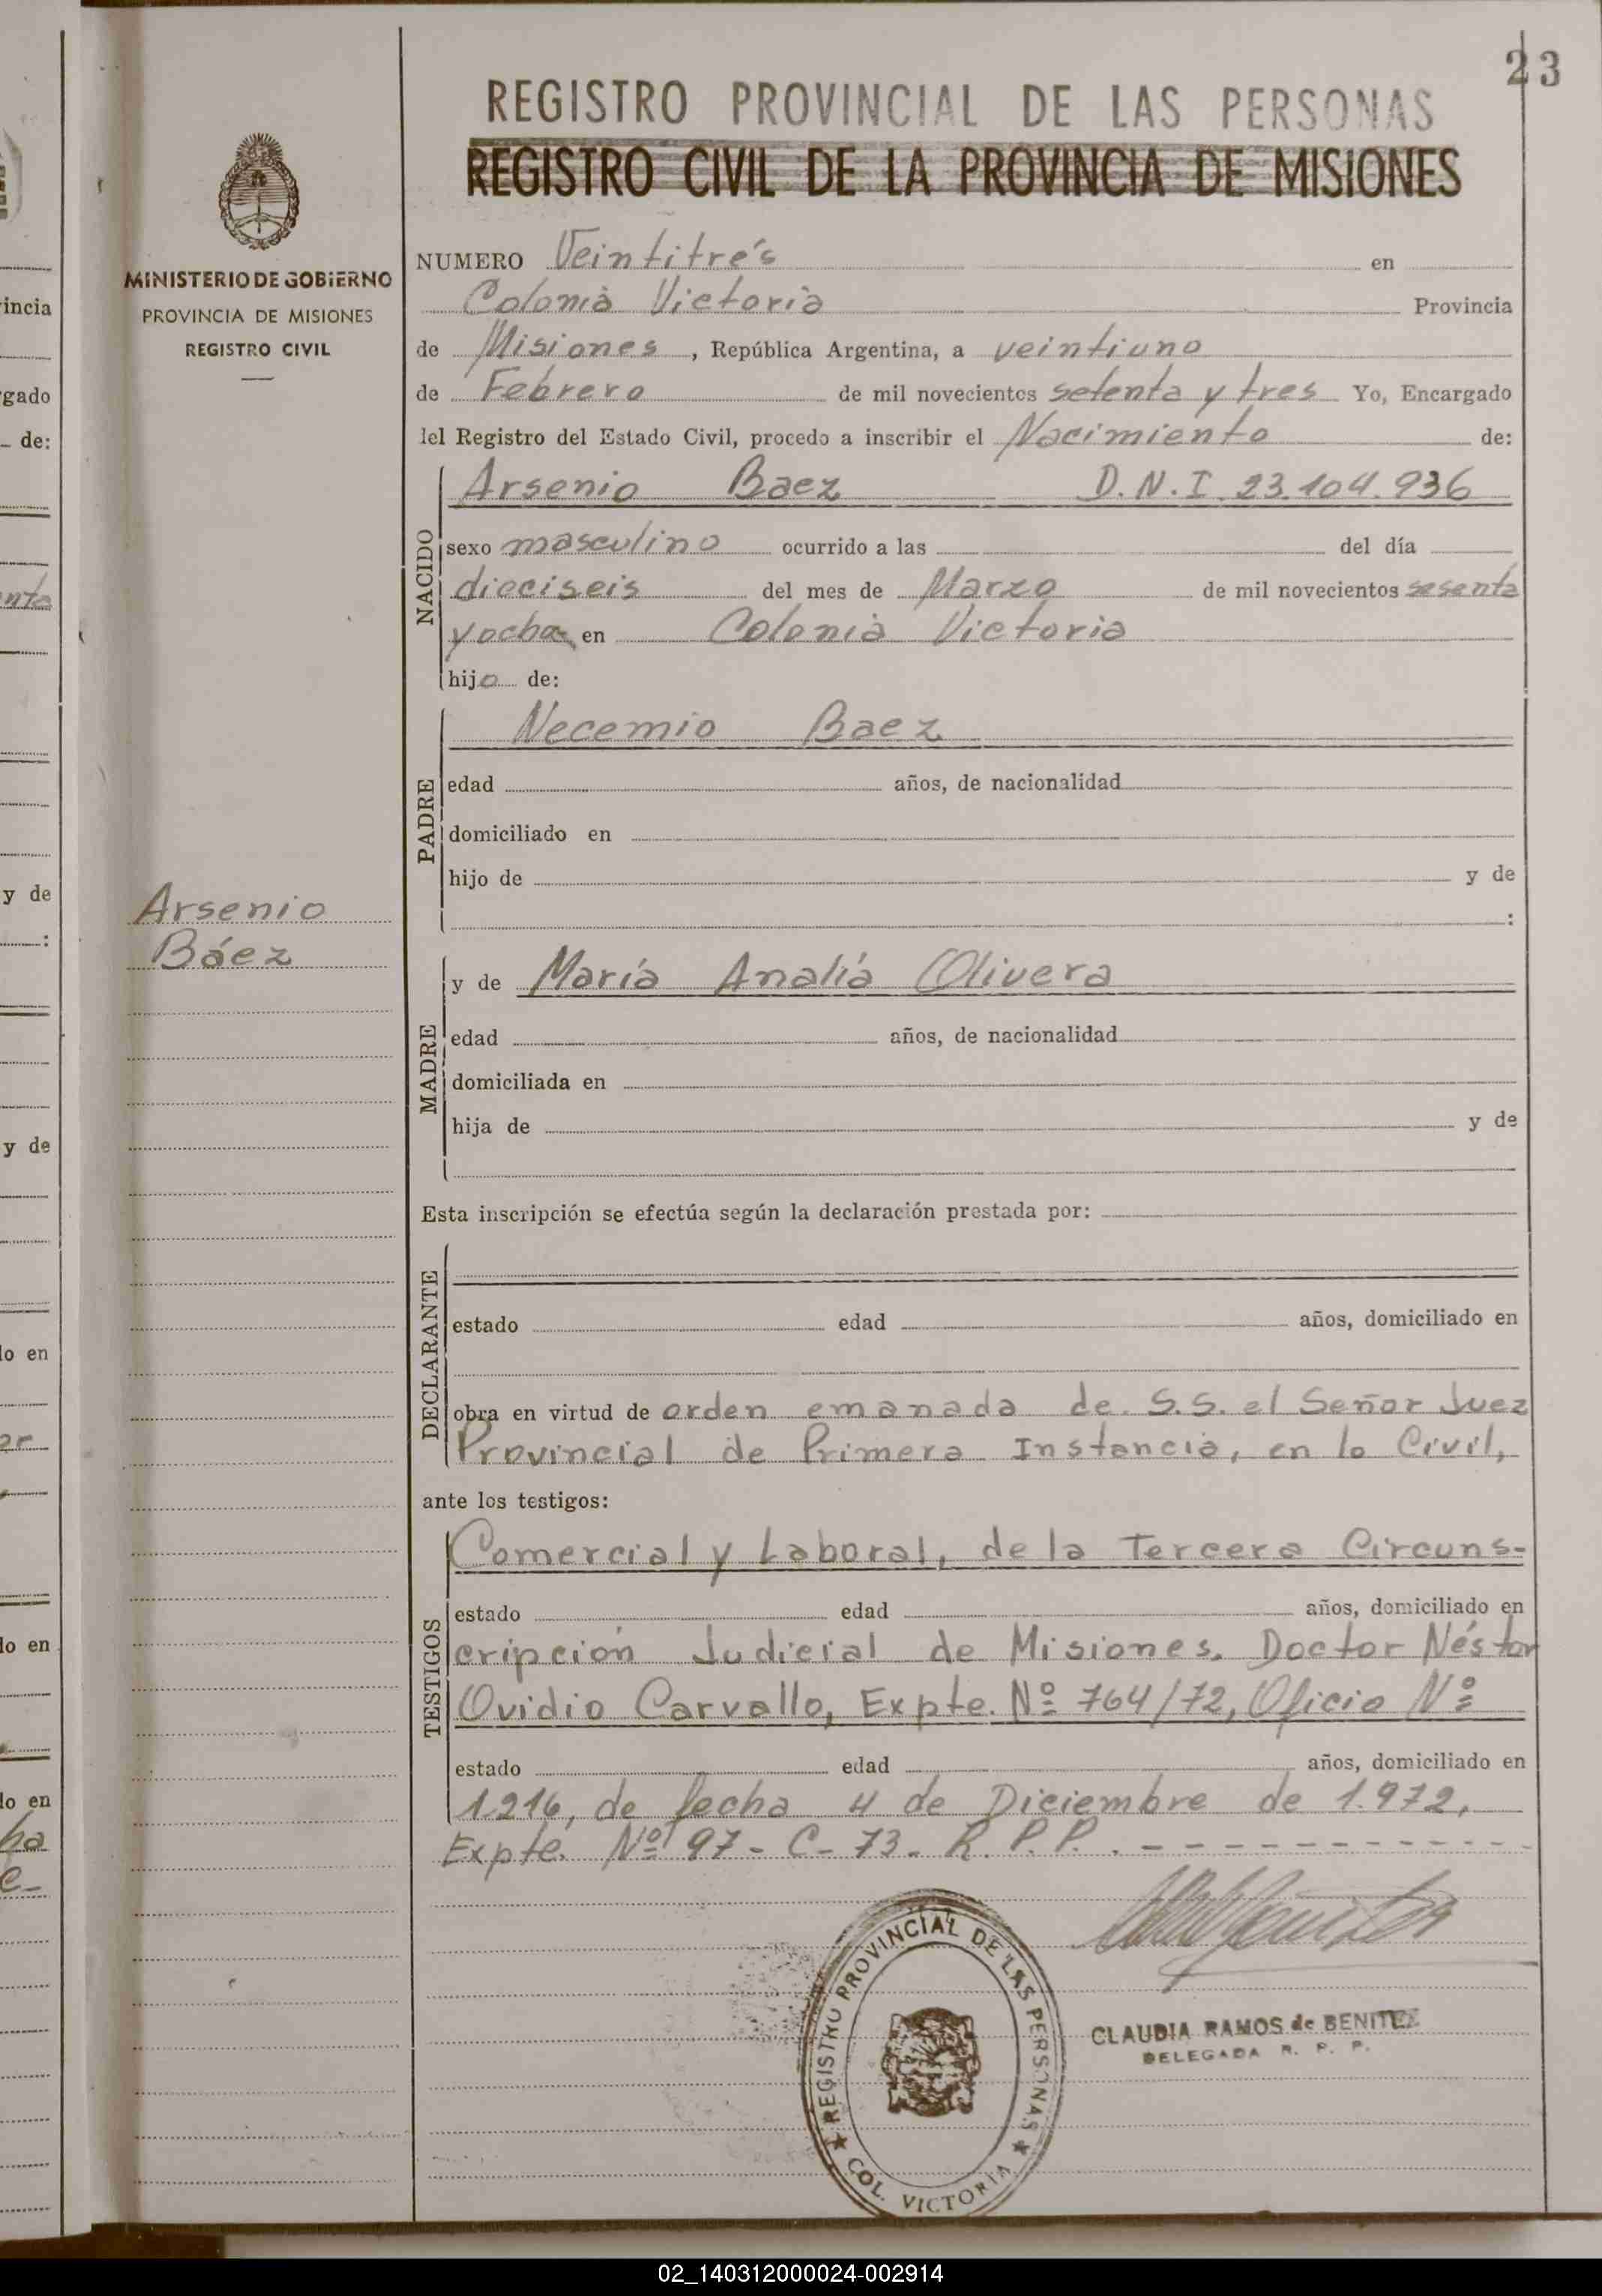 23
REGISTRO PROVINCIAL DE LAS PERSONAS
REGISTRO CIVIL DE LA PROVINCIA DE MISIONES
MINISTERIO DE GOBIERNO
PROVINCIA DE MISIONES
REGISTRO CIVIL
NUMERO Veintitrés en
Colonia Victoria Provincia
de Misiones, República Argentina, a veintiuno
de Febrero de mil novecientos setenta y tres Yo, Encargado
lel Registro del Estado Civil, procedo a inscribir el Nacimiento de:
NACIDO
Arsenio Baez D.N.I. 23.104.936
sexo masculino ocurrido a las del día
dieciseis del mes de Marzo de mil novecientos sesenta
y ocho en Colonia Victoria
hijo de:
PADRE
Necemio Baez
edad años, de nacionalidad
domiciliado en
hijo de y de
:
Arsenio
Báez
MADRE
y de María Analía Olivera
edad años, de nacionalidad
domiciliada en
hija de y de
Esta inscripción se efectúa según la declaración prestada por:
DECLARANTE
estado edad años, domiciliado en
obra en virtud de orden emanada de S.S. el Señor Juez
Provincial de Primera Instancia, en lo Civil,
ante los testigos:
TESTIGOS
Comercial y Laboral, de la Tercera Circuns-
estado edad años, domiciliado en
cripción Judicial de Misiones. Doctor Néstor
Ovidio Carvallo, Expte. Nº 764/72, Oficio Nº
estado edad años, domiciliado en
1216, de fecha 4 de Diciembre de 1.972,
Expte. Nº 97-C-73. R.P.P. . - - - - - - - - - - -
REGISTRO PROVINCIAL DE LAS PERSONAS
★ COL. VICTORIA ★
CLAUDIA RAMOS de BENITEZ
DELEGADA R. P. P.
incia
gado
de:
y de
:
y de
lo en
lo en
lo en
02_140312000024-002914